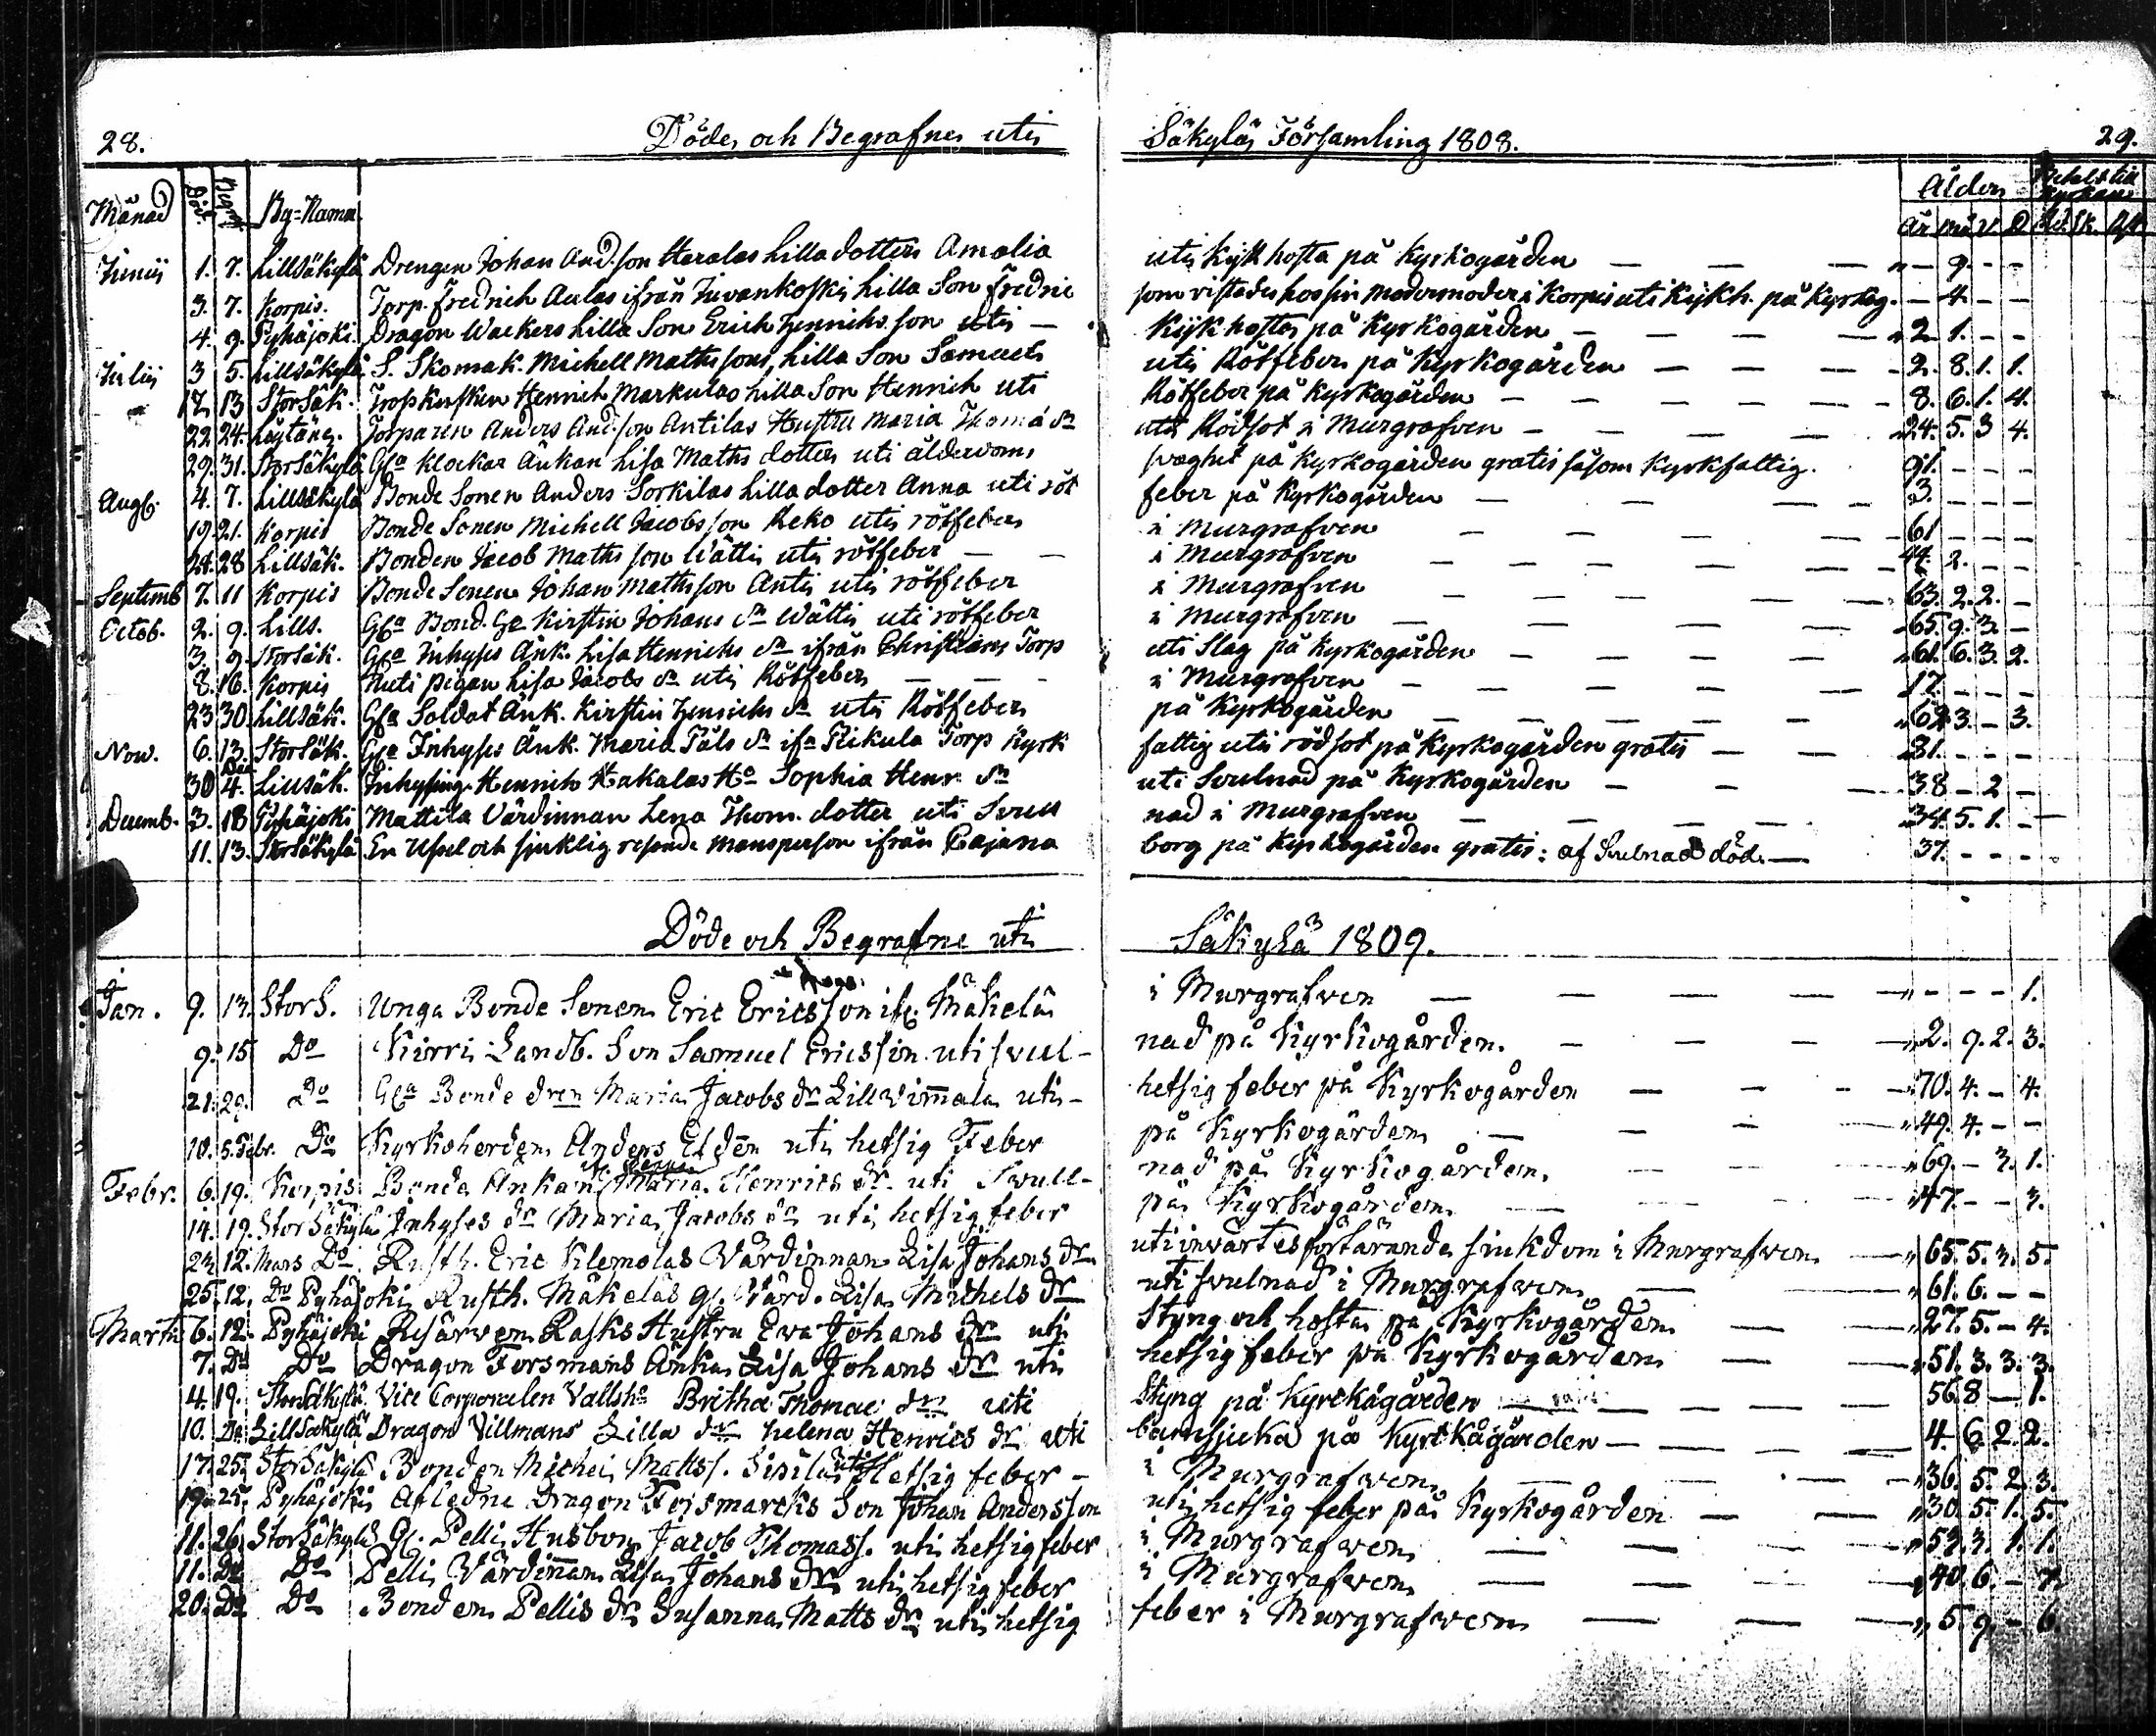 28. Döde och Begrafne uti Säkylä Församling 1808. 29.
Månad Död. Begr. By=Namn Ålder
År Mån V D Rd. Sk.
Junii 1. 7. Lillsäkylä Drengen Johan And.son Haralas Lilla dotter Amalia uti Kijkhosta på Kyrkogården — 9. - -
3. 7. Korpis. Torp. Fredrich Aulas ifrån Juvankoski Lilla Son Fredric som vistades hos sin modermoder i Korpis uti Kijkh. på Kyrkog. - 4. - -
4. 9. Pyhäjoki. Dragon Wackers Lilla Son Erich Henrichs son uti — Kijkhosta på Kyrkogården — 2. 1. - -
Julii 3 5. Lillsäkylä S. Skomak. Michell Mathssons Lilla Son Samuel uti Rötfeber på Kyrkogården — 2. 8. 1. 1.
12. 13 Storsäk. Henrich Markulas Lilla Son Henrich uti Rötfeber på Kyrkogården — 8. 6. 1. 4.
22. 24. Torparen Anders And.son Antilas Hustru Maria Thom. dr uti Rödsot i Murgrafven — 24. 5. 3 4.
29. 31. Storsäkylä Gla Klockar Änkan Lisa Maths dotter uti ålderdoms svaghet på Kyrkogården gratis såsom Kyrkfattig. 91. - - -
Aug. 4. 7. Lillsäkylä Bonde Sonen Anders Sorkilas Lilla dotter Anna uti röt feber på Kyrkogården — 3. - - -
19. 21. Korpis Bonde Sonen Michell Jacobsson Keko uti rötfeber i Murgrafven — 61 - - -
24. 28 Lillsäk. Bonden Jacob Mathsson Wättis uti rötfeber — i Murgrafven — 44. 2. - -
Septemb 7. 11 Korpis Bonde Sonen Johan Mathsson Antis uti rötfeber i Murgrafven — 63. 2. 2. -
Octob. 2. 9. Lills. Gla Bond. Kirstin Johans dr Wättis uti rötfeber i Murgrafven — 65. 9. 3. -
3. 9. Storsäk. Gla Inhyses Änk. Lisa Henrichs dr ifrån Christians Torp uti Slag på Kyrkogården — 61. 6. 3. 2.
8. 16. Korpis pigan Lisa Jacobs dr uti Rötfeber — i Murgrafven — 17. - - -
23 30. Lillsäk. Gla Soldat Änk. Kirstin Henrichs dr uti Rötfeber på Kyrkogården — 3. - 3.
Nov. 6. 13. Storsäk. Gla Inhyses Änk. Maria Påls dr if. Torp Kyrk fattig uti rödsot på Kyrkogården gratis — 81. - - -
30 Dec 4. Lillsäk. Inhysing. Henrich Kakalas Ha Sophia Henr. dr uti Svulnad på Kyrkogården — 38 - 2 -
Decemb. 3. 18 Pyhäjoki Mattila Värdinnan Lena Thom. dotter uti Svul nad i Murgrafven — 34. 5. 1. -
11. 13. Storsäkylä En Usel och sjuklig resande mansperson ifrån Cajana borg på Kyrkogården gratis: af Svulnad död. — 37. - - -
Döde och Begrafne uti Säkylä 1809.
Jan. 9. 13. Stor S. Unga Bonde Sonen Eric Ericsson if. Mäkelä i Murgrafven — - - - 1.
9. 15 Do Kirri Landb. Son Samuel Ericsson uti svul- nad på Kyrkogården. — 2. 9. 2. 3.
21. 29. Do Gla Bonde dren Maria Jacobs dr Lillvimala uti- hetsig feber på Kyrkogården — 70. 4. - 4.
18. 5. Febr. Do Kyrkoherden Anders Eldén uti hetsig Feber på Kyrkogården — 49. 4. - -
Febr. 6. 19. Korpis Bonde Änkan Maria Henrics dr uti Svull- nad på Kyrkogården. — 69. - 3. 1.
14. 19. StorSäkylä Inhyses dr Maria Jacobs dr uti hetsig feber på Kyrkogården — 47. - - 3.
23. 12. Mars Do Rusth. Eric Klemolas Värdinnan Lisa Johans dr uti invärtes förtärande siukdom i Murgrafven — 65. 5. 3. 5.
25. 12. Do Pyhäjoki Rusth. Mäkeläs gl. Värd. Lisa Michels dr uti svulnad i Murgrafven — 61. 6. - -
Martii 6. 12. Pyhäjoki Reserven Rasks Hustru Eva Johans dr uti Styng och hosta på Kyrkogården — 27. 5. - 4.
7. Do Do Dragon Forsmans Änka Lisa Johans dr uti hetsig feber på Kyrkogården — 51. 3. 3. 3.
4. 19. StorSäkylä Vice Corporalen Vallsh. Britha Thomae dr uti Styng på Kyrckågården — 56 8 — 1.
10. Do LillSäkylä Dragon Villmans Lilla dr Helena Henrics dr uti barnsjuka på Kyrckågården — 4. 6. 2. 2.
17. 25. StorSäkylä Bonden Michel Matss. Sipilas uti Hetsig feber - i Murgrafven — 36. 5. 2. 3.
19. 25. Pyhäjoki Afledne Dragon Forsmarcks Son Johan Andersson uti hetsig feber på Kyrkogården — 30. 5. 1. 5.
11. 26. StorSäkylä Gl. Pelli Husbon Jacob Thomass. uti hetsig feber i Murgrafven — 3. 1. 1.
11. Do Do Pelli Värdinnan Lisa Johans dr uti hetsig feber i Murgrafven — 40. 6. -
20. Do Do Bonden Pellis dr Susanna Matts dr uti hetsig feber i Murgrafven — 5. 9. - 6.